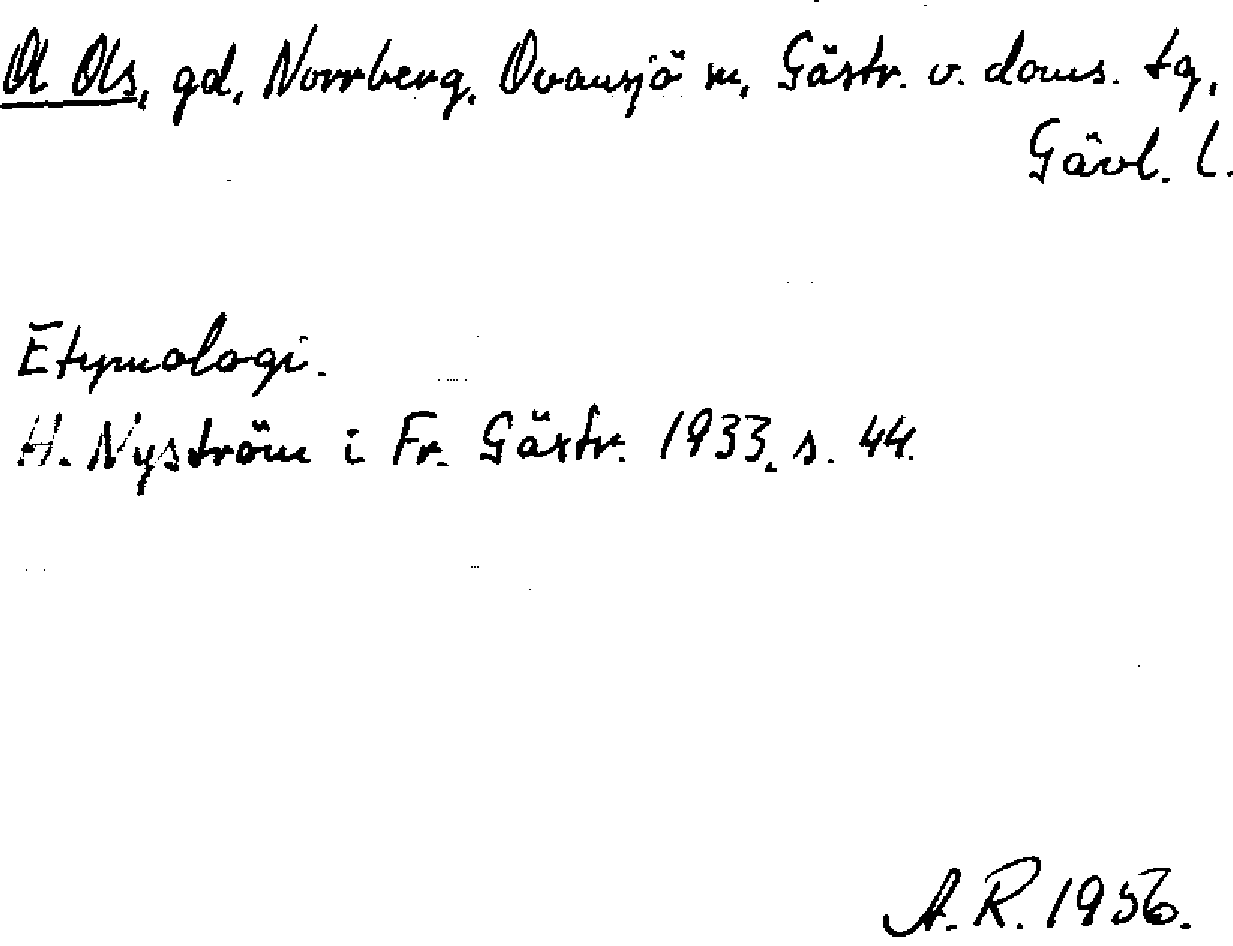 Ol Ols, gd, Norrberg, Ovansjö sn, Gästr. v. doms. tg,
Gävl. l.
Etymologi.
H. Nyström i Fr. Gästr. 1933, s. 44.
A. R. 1956.